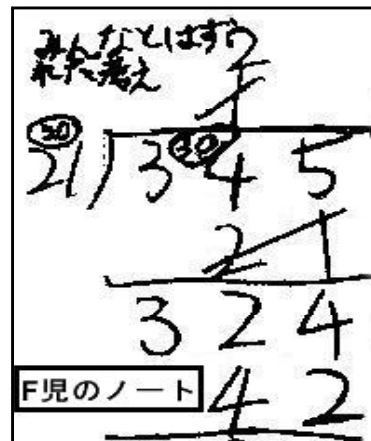 みんなとはず
れた考え
2
1
30
21)345
21
324
F児のノート
42